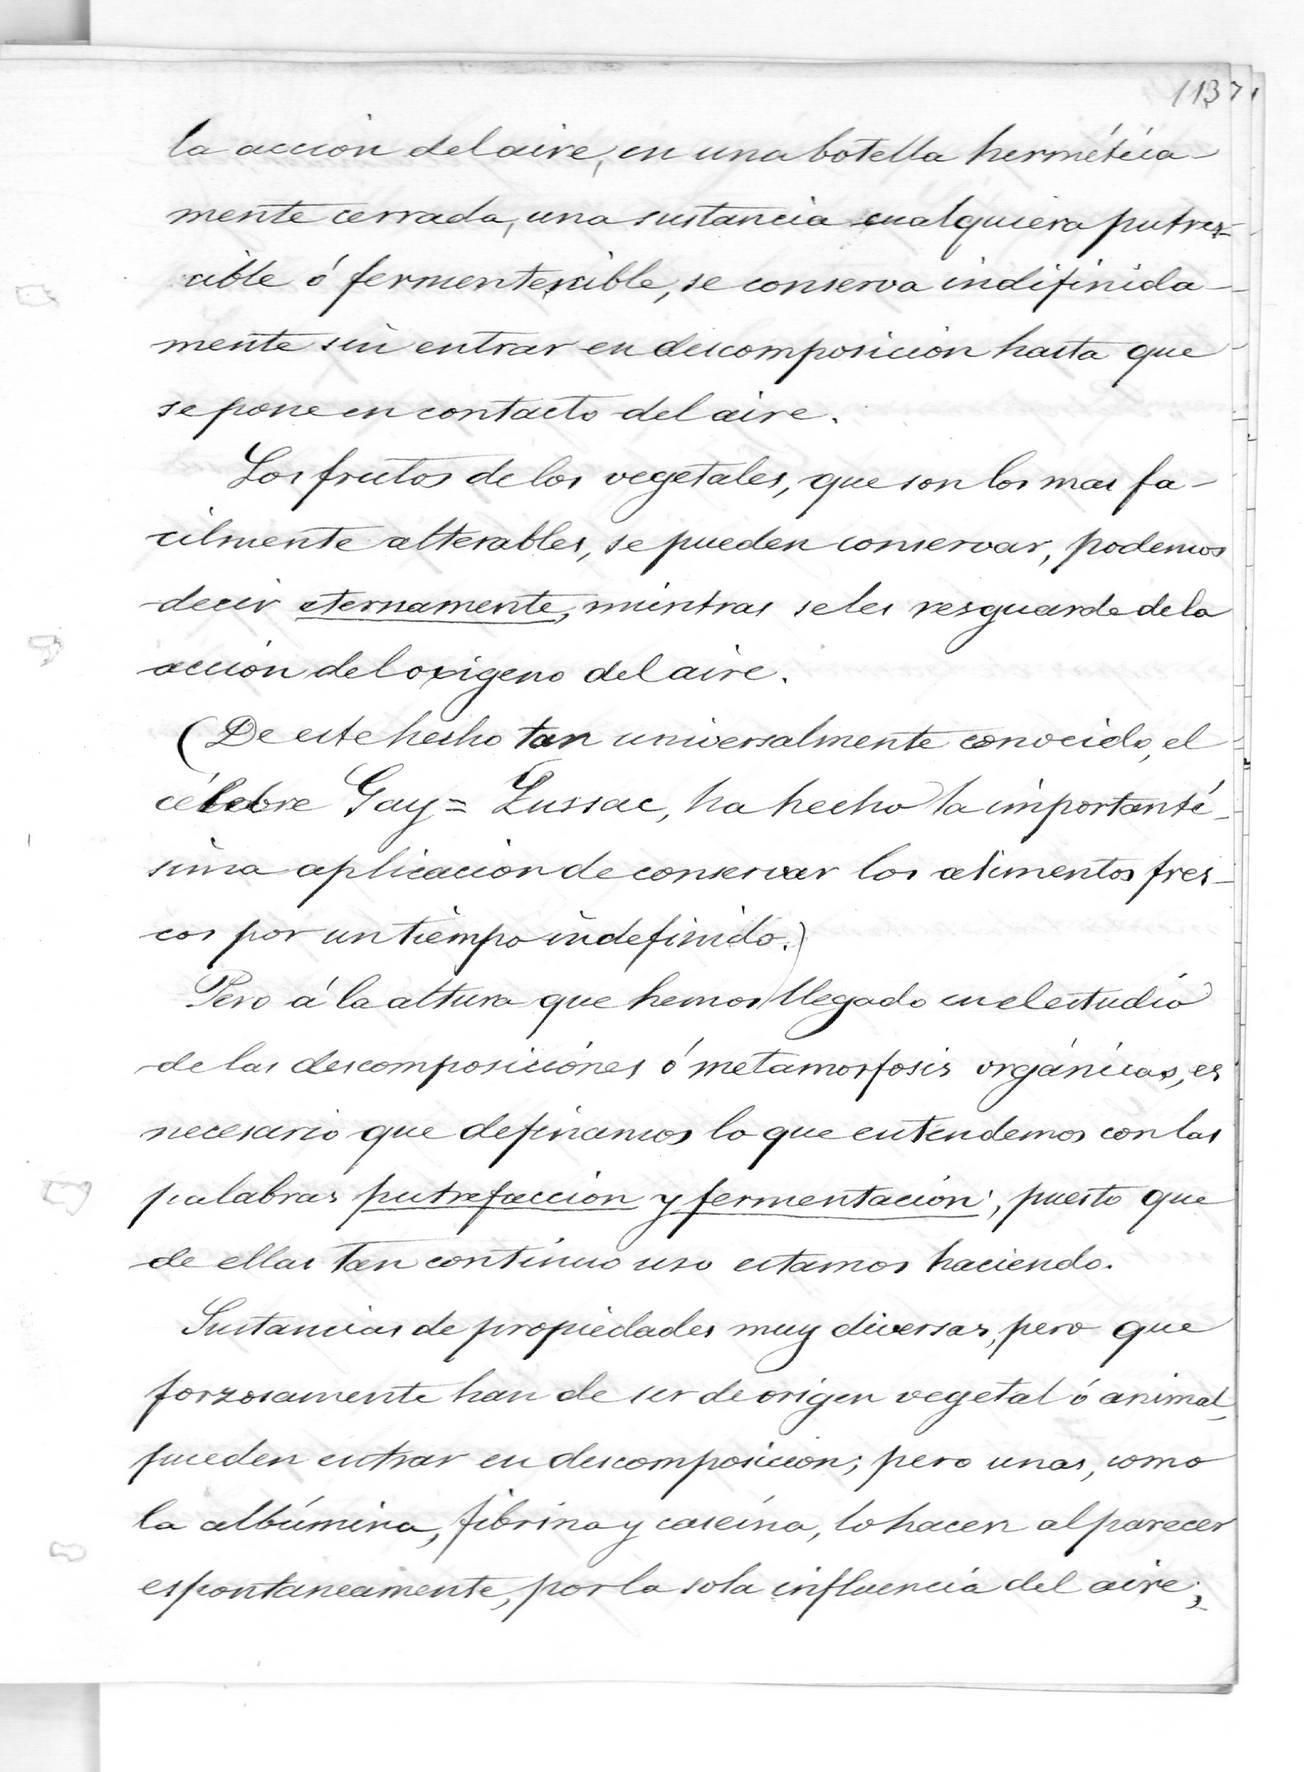 1137
la accion del aire, en una botella herméticа-
mente cerrada, una sustancia cualquiera putres-
cible ó fermentescible, se conserva indifinida-
mente sin entrar en descomposicion hasta que
se pone en contacto del aire.
Los frutos de los vegetales, que son los mas fa-
cilmente alterables, se pueden conservar, podemos
decir eternamente, mintras se les resguarde de la
accion del oxigeno del aire.
(De este hecho tan universalmente conocido, el
célebre Gay=Lussac, ha hecho la importantí-
sima aplicacion de conservar los alimentos fres-
cos por un tiempo indefinido.)
Pero á la altura que hemos llegado en el estudio
de las descomposiciónes ó metamorfosis orgánicas, es
necesario que definamos lo que entendemos con las
palabras putrefaccion y fermentación; puesto que
de ellas tan contínuo uso estamos haciendo.
Sustancias de propiedades muy diversas, pero que
forzosamente han de ser de origen vegetal ó animal,
pueden entrar en descomposicion; pero unas, como
la albúmina, fibrina y caseína, lo hacen al parecer
espontaneamente, por la sola influencia del aire;